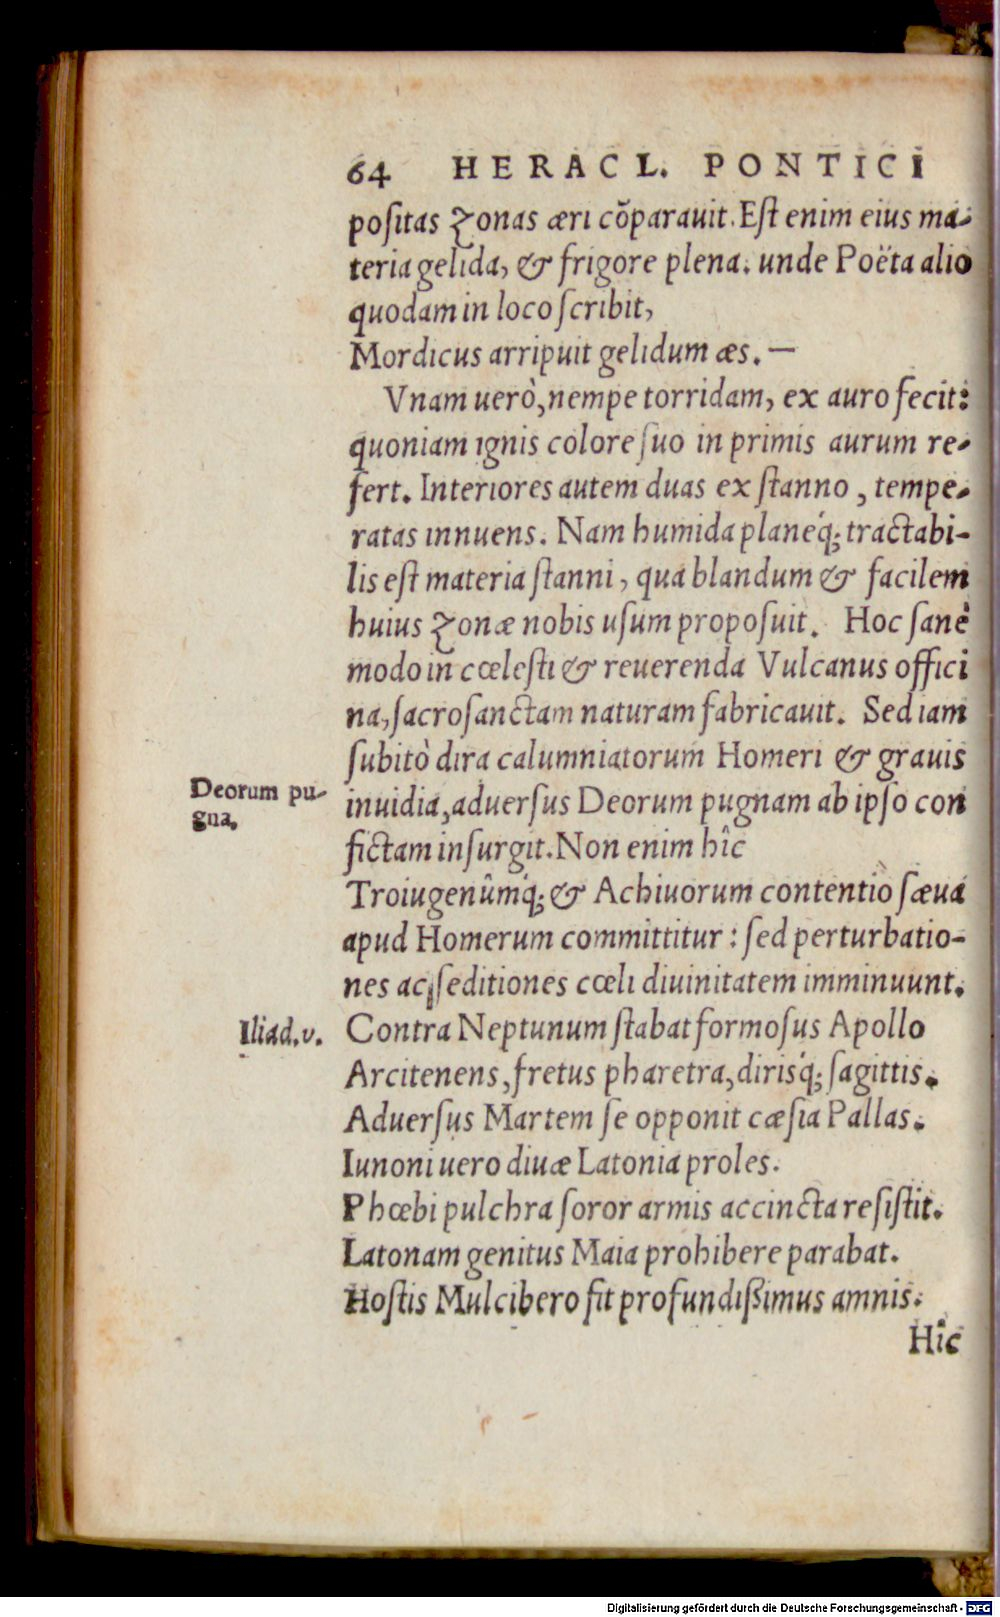 64 HERACL. PONTICI
poſitas zonas æri cõparauit. Eſt enim eius ma-
teria gelida, & frigore plena. unde Poëta alio
quodam in loco ſcribit,
Mordicus arripuit gelidum æs. —
Vnam uerò, nempe torridam, ex auro fecit:
quoniam ignis colore ſuo in primis aurum re-
fert. Interiores autem duas ex ſtanno, tempe-
ratas innuens. Nam humida planeq́; tractabi-
lis eſt materia ſtanni, qua blandum & facilem
huius zonæ nobis uſum propoſuit. Hoc ſanè
modo in cœleſti & reuerenda Vulcanus offici
na, ſacroſanctam naturam fabricauit. Sed iam
ſubitò dira calumniatorum Homeri & grauis
Deorum pu-
gna.
inuidia, aduerſus Deorum pugnam ab ipſo con
fictam inſurgit. Non enim hîc
Troiugenûmq́; & Achiuorum contentio ſæua
apud Homerum committitur: ſed perturbatio-
nes ac ſeditiones cœli diuinitatem imminuunt.
Iliad. v.
Contra Neptunum ſtabat formoſus Apollo
Arcitenens, fretus pharetra, diriſq́; ſagittis.
Aduerſus Martem ſe opponit cæſia Pallas.
Iunoni uero diuæ Latonia proles.
Phœbi pulchra ſoror armis accincta reſiſtit.
Latonam genitus Maia prohibere parabat.
Hoſtis Mulcibero fit profundißimus amnis.
Hîc
Digitalisierung gefördert durch die Deutsche Forschungsgemeinschaft - DFG